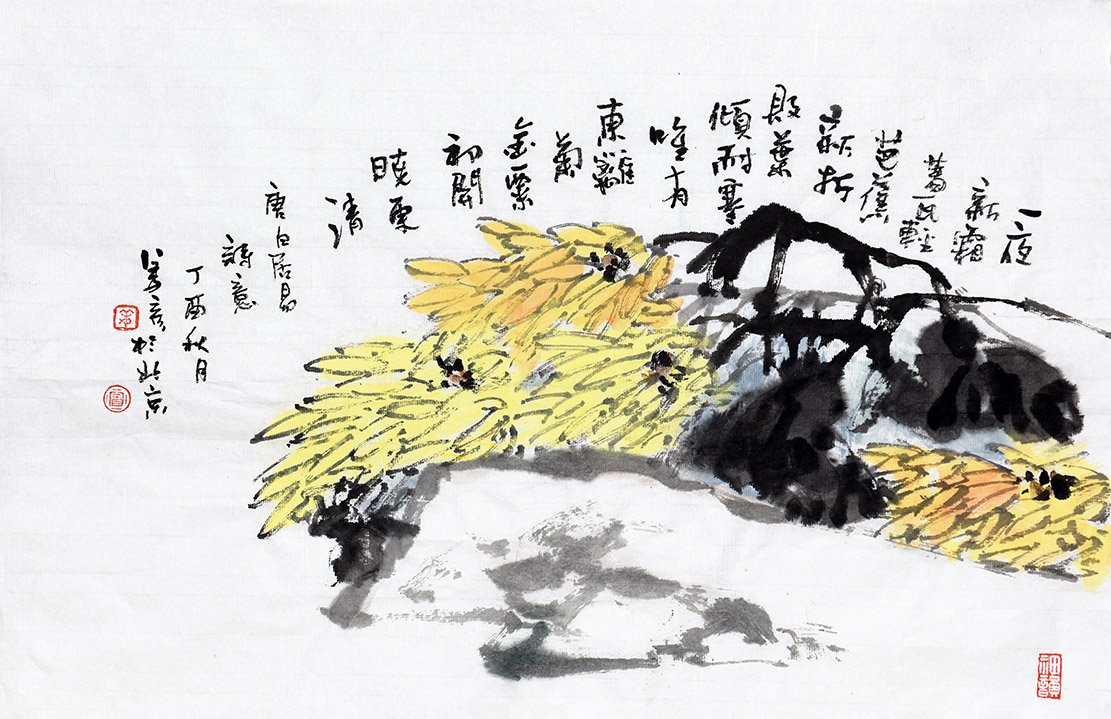 一夜
新霜
著瓦輕
芭蕉
新折
敗葉
傾耐寒
唯有
東籬
菊
金粟
初開
曉更
清
唐白居易
詩意
丁酉秋月
於北京